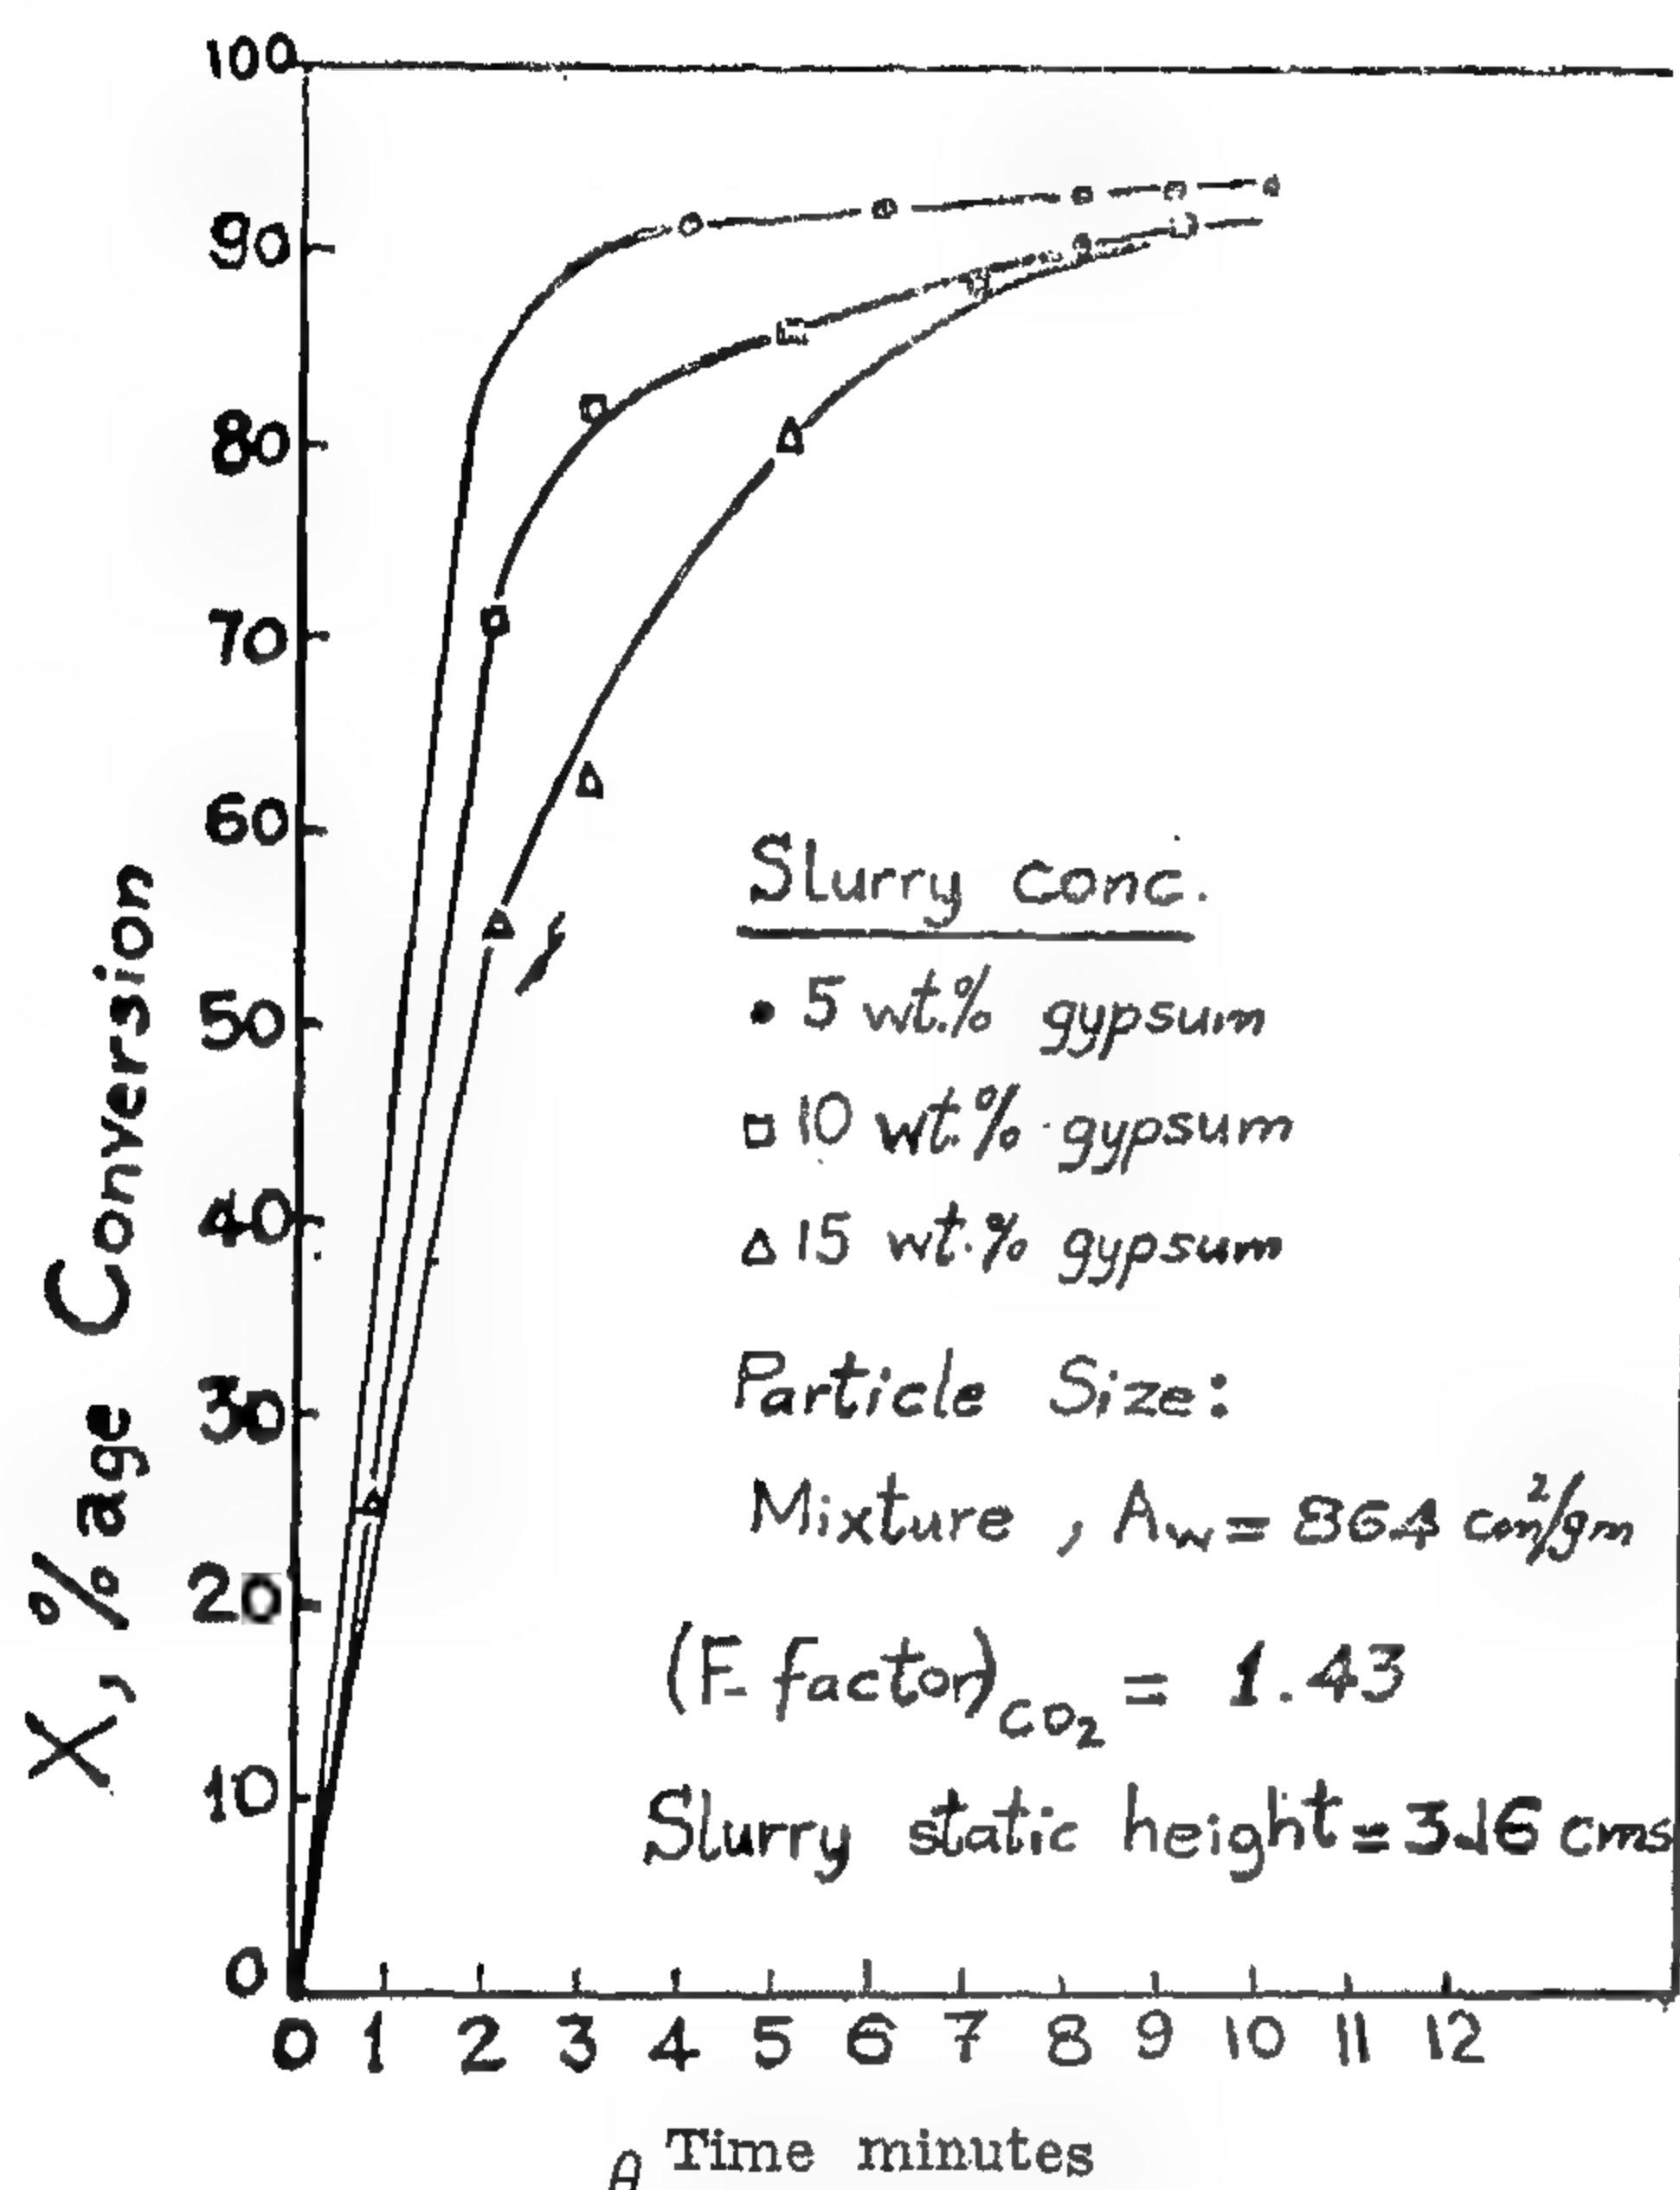 100
90
80
70
60
50
40
30
20
10
0
X, %age Conversion
Slurry conc.
• 5 wt.% gypsum
□ 10 wt.% gypsum
△ 15 wt.% gypsum
Particle Size:
Mixture, Aw = 864 cm²/gm
(F-factor)CO2 = 1.43
Slurry static height = 3.16 cms
0 1 2 3 4 5 6 7 8 9 10 11 12
θ Time minutes